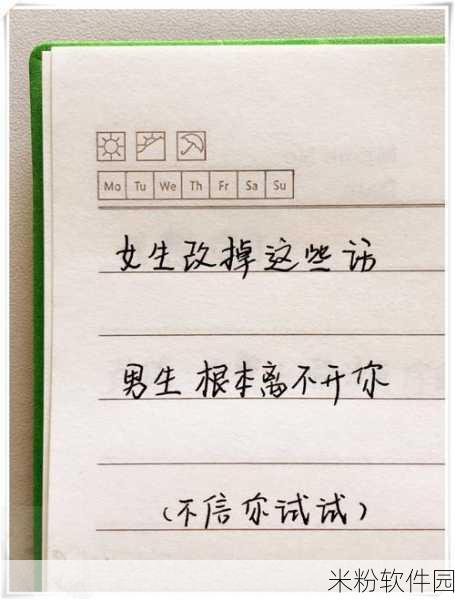 Mo Tu We Th Fr Sa Su
女生改掉这些话
男生根本离不开你
(不信你试试)
米粉软件园